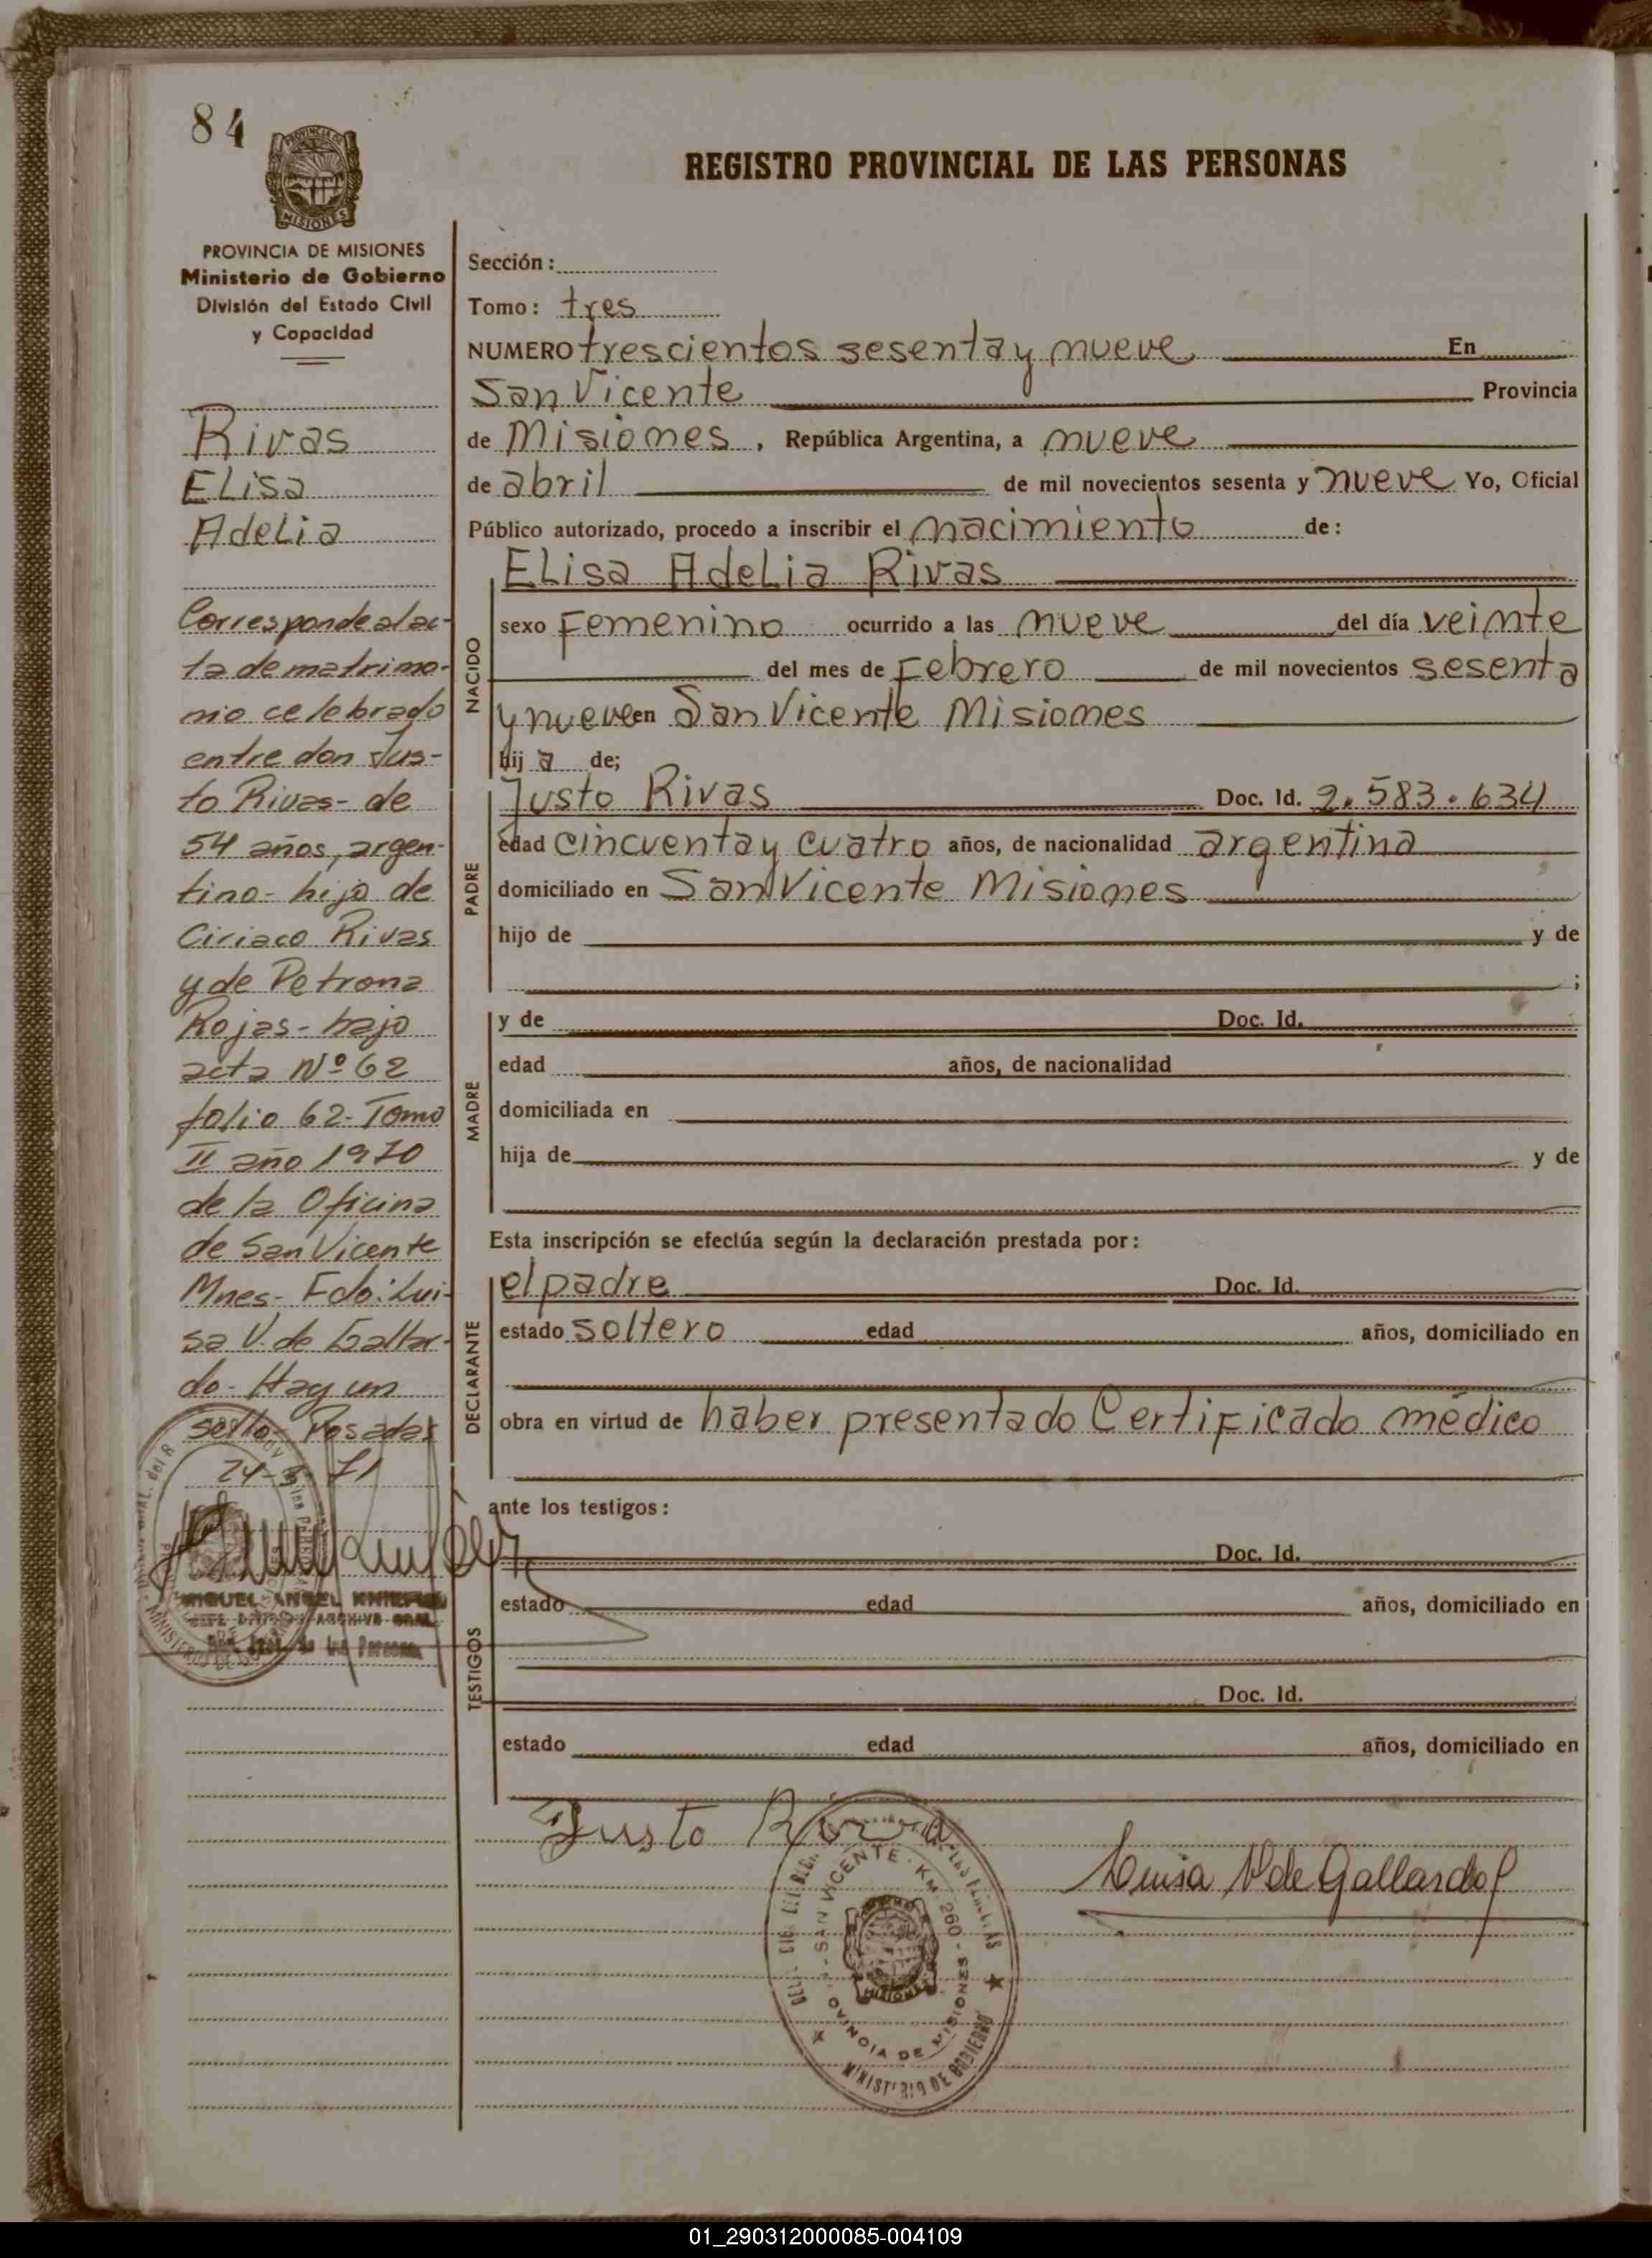 84
PROVINCIA DE MISIONES
Ministerio de Gobierno
División del Estado Civil
y Capacidad
Rivas
Elisa
Adelia
Corresponde al ac-
ta de matrimo-
nio celebrado
entre don Jus-
to Rivas- de
54 años, argen-
tino- hijo de
Ciriaco Rivas
y de Petrona
Rojas- bajo
acta Nº 62
folio 62- Tomo
II año 1970
de la Oficina
de San Vicente
Mnes- Fdo: Lui-
sa V. de Gallar-
do- Hay un
sello- Posadas
MIGUEL ANGEL
REGISTRO PROVINCIAL DE LAS PERSONAS
Sección:
Tomo: tres
NUMERO trescientos sesenta y nueve En
San Vicente Provincia
de Misiones, República Argentina, a nueve
de abril de mil novecientos sesenta y nueve Yo, Oficial
Público autorizado, procedo a inscribir el nacimiento de:
Elisa Adelia Rivas
NACIDO
sexo Femenino ocurrido a las nueve del día veinte
del mes de Febrero de mil novecientos sesenta
y nueve en San Vicente Misiones
hij a de;
PADRE
Justo Rivas Doc. Id. 2.583.634
edad cincuenta y cuatro años, de nacionalidad argentina
domiciliado en San Vicente Misiones
hijo de y de
;
MADRE
y de Doc. Id.
edad años, de nacionalidad
domiciliada en
hija de y de
Esta inscripción se efectúa según la declaración prestada por:
DECLARANTE
el padre Doc. Id.
estado soltero edad años, domiciliado en
obra en virtud de haber presentado Certificado médico
ante los testigos:
TESTIGOS
Doc. Id.
estado edad años, domiciliado en
Doc. Id.
estado edad años, domiciliado en
Justo Rivas
Luisa V de Gallardo
SAN VICENTE - KM 260 -
MISIONES
MINISTERIO DE GOBIERNO
01_290312000085-004109